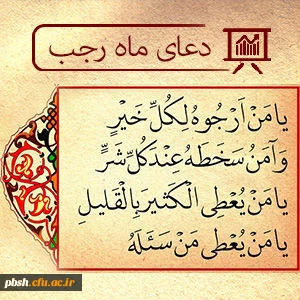 دعای ماه رجب
یا مَنْ اَرْجُوهُ لِکُلِّ خَیْرٍ
وَ آمَنُ سَخَطَهُ عِنْدَ کُلِّ شَرٍّ
یا مَنْ یُعْطِی الْکَثیرَ بِالْقَلیلِ
یا مَنْ یُعْطی مَنْ سَئَلَهُ
pbsh.cfu.ac.ir